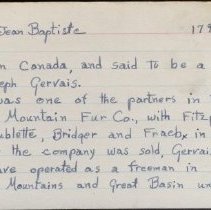 Jean Baptiste 179
n Canada, and said To be a
eph Gervais.
was one of the partners in
Mountain Fur Co., with Fitzp
ublette, Bridger and Fraebx in
the company was sold, Gervai
ave operated as a freeman in
Mountains and Great Basin un